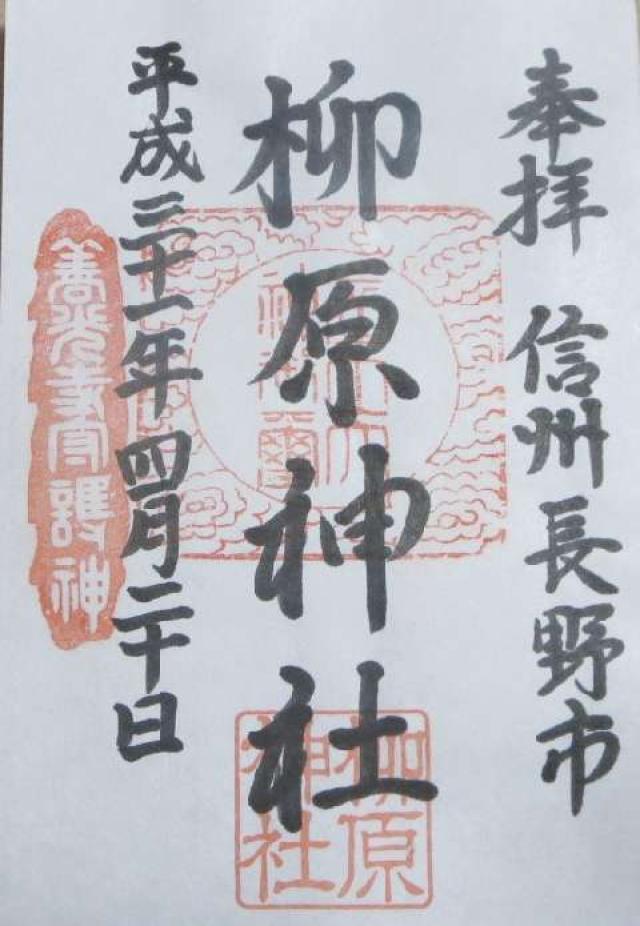 奉拝 信州長野市
柳原神社
平成三十一年四月二十日
善光寺守護神
柳原
神社